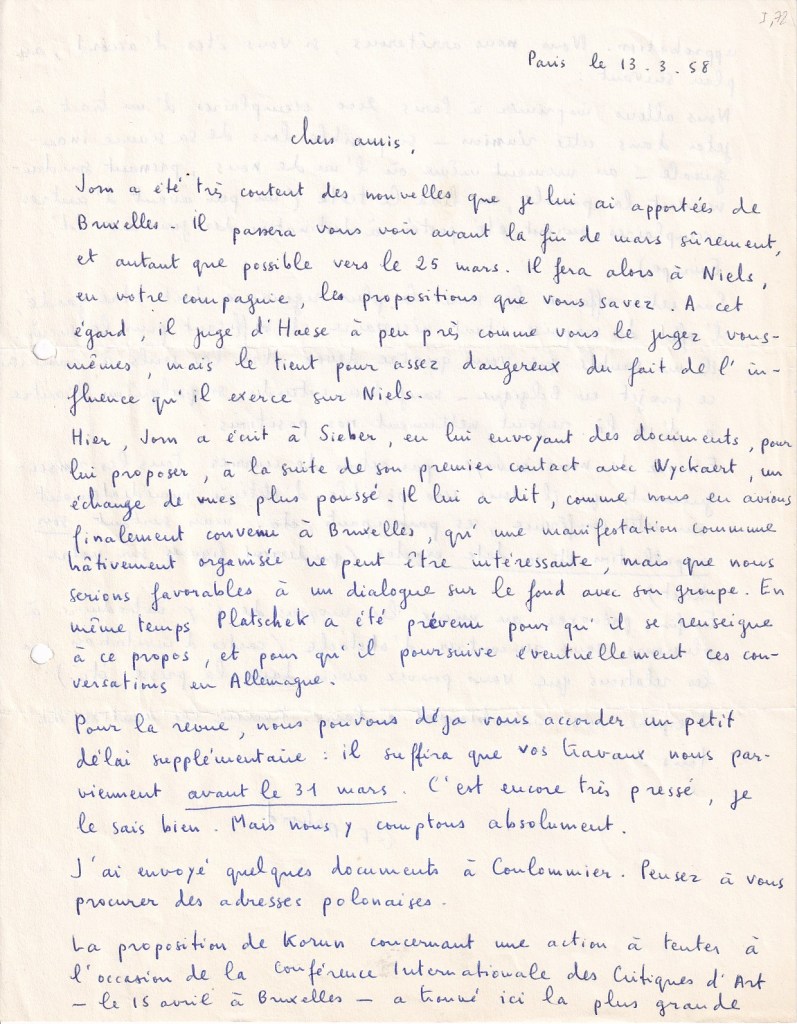 I,72
Paris le 13.3.58
Chers amis,
Jorn a été très content des nouvelles que je lui ai apportées de
Bruxelles. Il passera vous voir avant la fin de mars sûrement,
et autant que possible vers le 25 mars. Il fera alors à Niels,
en votre compagnie, les propositions que vous savez. A cet
égard, il juge d'Haese à peu près comme vous le jugez vous-
mêmes, mais le tient pour assez dangereux du fait de l'in-
fluence qu'il exerce sur Niels.
Hier, Jorn a écrit à Sieber, en lui envoyant des documents, pour
lui proposer, à la suite de son premier contact avec Wyckaert, un
échange de vues plus poussé. Il lui a dit, comme nous en avions
finalement convenu à Bruxelles, qu'une manifestation commune
hâtivement organisée ne peut être intéressante, mais que nous
serions favorables à un dialogue sur le fond avec son groupe. En
même temps Platschek a été prévenu pour qu'il se renseigne
à ce propos, et pour qu'il poursuive éventuellement ces con-
versations en Allemagne.
Pour la revue, nous pouvons déja vous accorder un petit
délai supplémentaire : il suffira que vos travaux nous par-
viennent avant le 31 mars. C'est encore très pressé, je
le sais bien. Mais nous y comptons absolument.
J'ai envoyé quelques documents à Coulommier. Pensez à vous
procurer des adresses polonaises.
La proposition de Korun concernant une action à tenter à
l'occasion de la Conférence Internationale des Critiques d'Art
– le 15 avril à Bruxelles – a trouvé ici la plus grande